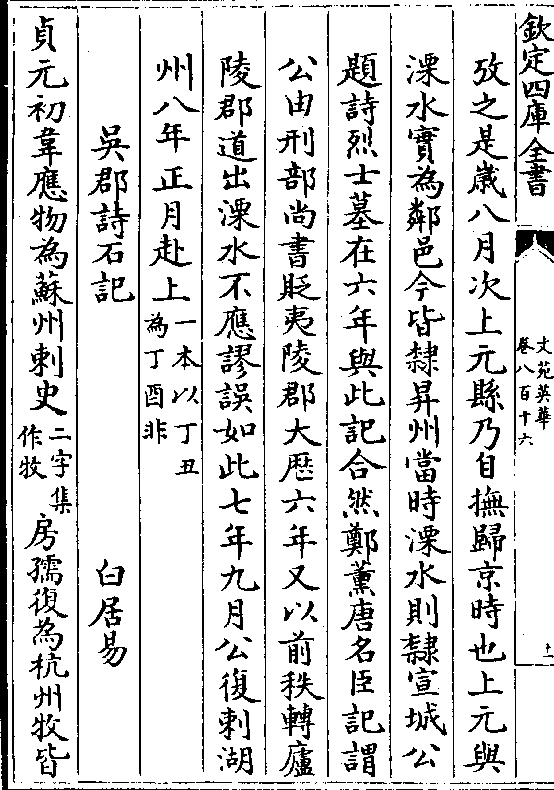 欽定四庫全書
文苑英華
卷八百十六
十一
攷之是歲八月次上元縣乃自撫歸京時也上元與
溧水實為鄰邑今皆隸昇州當時溧水則隸宣城公
題詩烈士墓在六年與此記合然鄭薰唐名臣記謂
公由刑部尚書貶夷陵郡大厯六年又以前秩轉廬
陵郡道出溧水不應謬誤如此七年九月公復刺湖
州八年正月赴上一本以丁丑為丁酉非
吳郡詩石記 白居易
貞元初韋應物為蘇州刺史二字集作牧房孺復為杭州牧皆